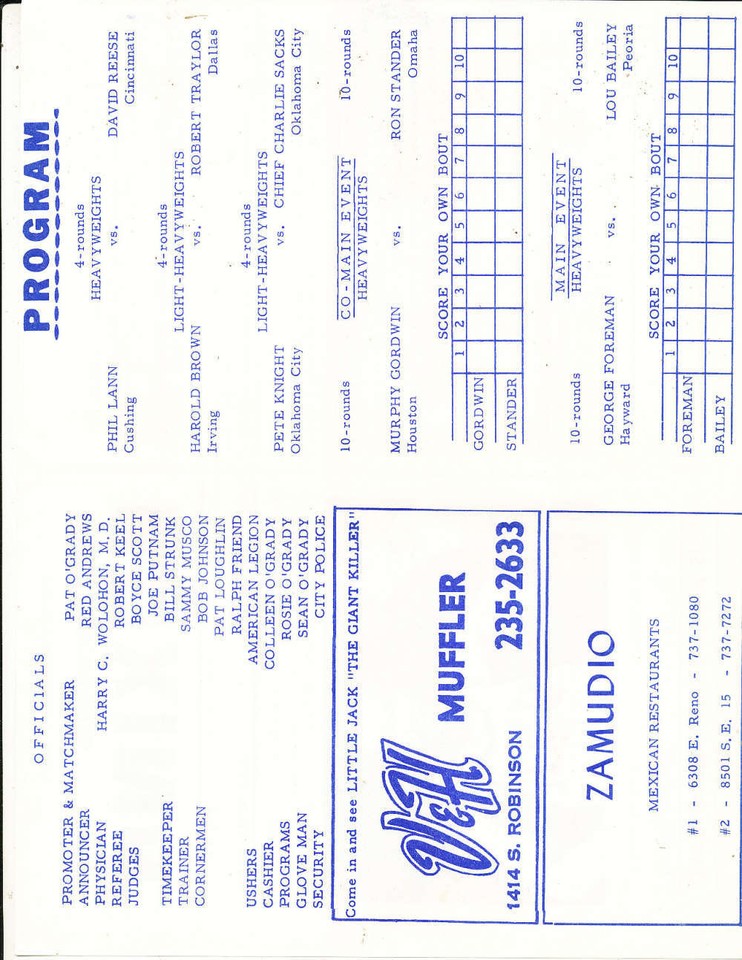 OFFICIALS
PROMOTER & MATCHMAKER PAT O'GRADY
ANNOUNCER RED ANDREWS
PHYSICIAN HARRY C. WOLOHON, M.D.
REFEREE ROBERT KEEL
JUDGES BOYCE SCOTT
JOE PUTNAM
TIMEKEEPER BILL STRUNK
TRAINER SAMMY MUSCO
CORNERMEN BOB JOHNSON
PAT LOUGHLIN
RALPH FRIEND
USHERS AMERICAN LEGION
CASHIER COLLEEN O'GRADY
PROGRAMS ROSIE O'GRADY
GLOVE MAN SEAN O'GRADY
SECURITY CITY POLICE
Come in and see LITTLE JACK "THE GIANT KILLER"
V&H MUFFLER
1414 S. ROBINSON 235-2633
ZAMUDIO
MEXICAN RESTAURANTS
#1 - 6308 E. Reno - 737-1080
#2 - 8501 S.E. 15 - 737-7272
PROGRAM
4-rounds
HEAVYWEIGHTS
PHIL LANN vs. DAVID REESE
Cushing Cincinnati
4-rounds
LIGHT-HEAVYWEIGHTS
HAROLD BROWN vs. ROBERT TRAYLOR
Irving Dallas
4-rounds
LIGHT-HEAVYWEIGHTS
PETE KNIGHT vs. CHIEF CHARLIE SACKS
Oklahoma City Oklahoma City
10-rounds CO-MAIN EVENT 10-rounds
HEAVYWEIGHTS
MURPHY GORDWIN vs. RON STANDER
Houston Omaha
SCORE YOUR OWN BOUT
1 2 3 4 5 6 7 8 9 10
GORDWIN
STANDER
10-rounds MAIN EVENT 10-rounds
HEAVYWEIGHTS
GEORGE FOREMAN vs. LOU BAILEY
Hayward Peoria
SCORE YOUR OWN BOUT
1 2 3 4 5 6 7 8 9 10
FOREMAN
BAILEY